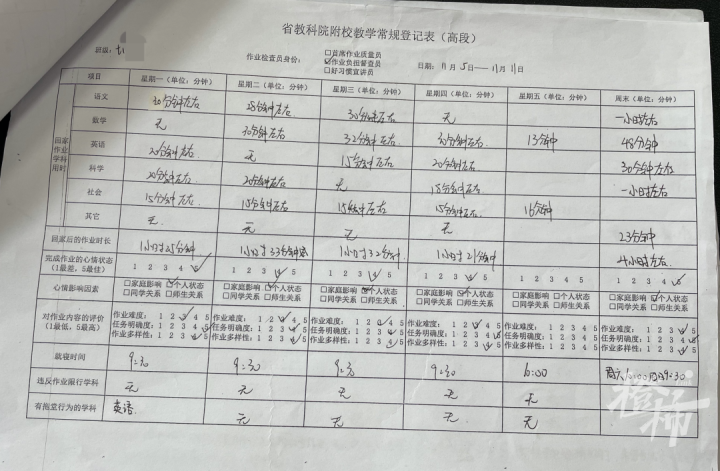 省教科院附校教学常规登记表（高段）
班级：七
作业检查员身份：
□首席作业质量员
☑作业负担督查员
□好习惯宣讲员
日期：11月5日—11月11日
项目 星期一（单位：分钟） 星期二（单位：分钟） 星期三（单位：分钟） 星期四（单位：分钟） 星期五（单位：分钟） 周末（单位：分钟）
回家作业学科用时
语文 30分钟左右 25分钟左右 30分钟左右 无 一小时左右
数学 无 30分钟左右 32分钟左右 30分钟左右 13分钟 48分钟
英语 20分钟左右 无 15分钟左右 20分钟左右 30分钟左右
科学 20分钟左右 20分钟左右 无 15分钟左右 一小时左右
社会 15分钟左右 15分钟左右 15分钟左右 15分钟左右 16分钟
其它 无 无 无 无 23分钟
回家后的作业时长 1小时25分钟 1小时33分钟 1小时32分钟 1小时21分钟 4小时左右
完成作业的心情状态 1 2 3 4 5 1 2 3 4 5 1 2 3 4 5 1 2 3 4 5 1 2 3 4 5 1 2 3 4 5
（1最差，5最佳）
心情影响因素 □家庭影响 ☑个人状态 □家庭影响 ☑个人状态 □家庭影响 ☑个人状态 □家庭影响 ☑个人状态 □家庭影响 □个人状态 □家庭影响 ☑个人状态
□同学关系 □师生关系 □同学关系 □师生关系 □同学关系 □师生关系 □同学关系 □师生关系 □同学关系 □师生关系 □同学关系 □师生关系
对作业内容的评价 作业难度：1 2 3 4 5 作业难度：1 2 3 4 5 作业难度：1 2 3 4 5 作业难度：1 2 3 4 5 作业难度：1 2 3 4 5 作业难度：1 2 3 4 5
（1最低，5最高） 任务明确度：1 2 3 4 5 任务明确度：1 2 3 4 5 任务明确度：1 2 3 4 5 任务明确度：1 2 3 4 5 任务明确度：1 2 3 4 5 任务明确度：1 2 3 4 5
作业多样性：1 2 3 4 5 作业多样性：1 2 3 4 5 作业多样性：1 2 3 4 5 作业多样性：1 2 3 4 5 作业多样性：1 2 3 4 5 作业多样性：1 2 3 4 5
就寝时间 9:30 9:30 9:30 9:30 10:00 周六10:00周日9:30
违反作业限行学科 无 无 无 无 无
有拖堂行为的学科 英语 无 无 无 无
橙柿